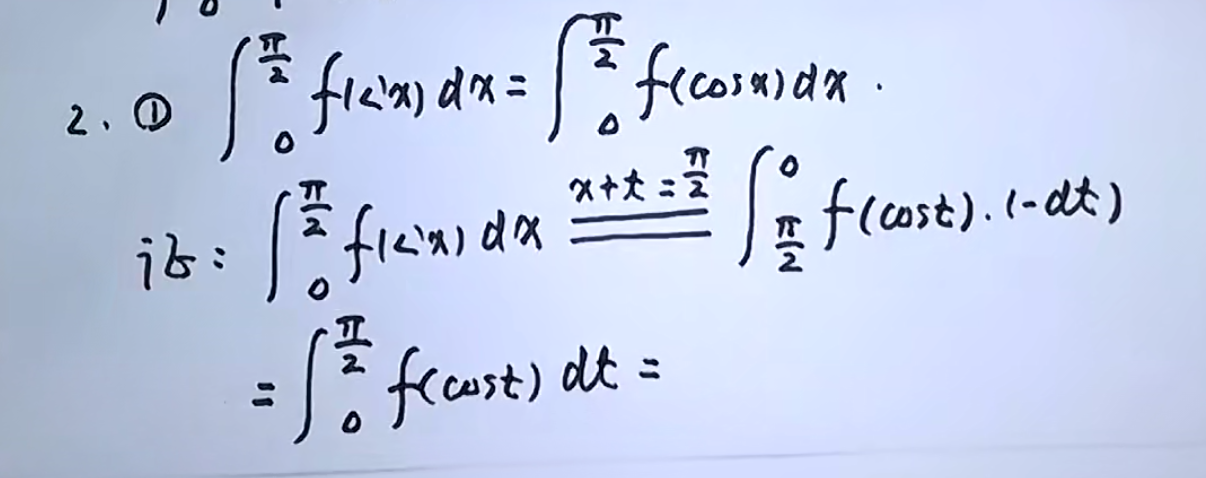 2. ① ∫₀^{π/2} f(sinx) dx = ∫₀^{π/2} f(cosx) dx .
证: ∫₀^{π/2} f(sinx) dx \xlongequal{x+t=π/2} ∫_{π/2}^0 f(cost).(-dt)
= ∫₀^{π/2} f(cost) dt =